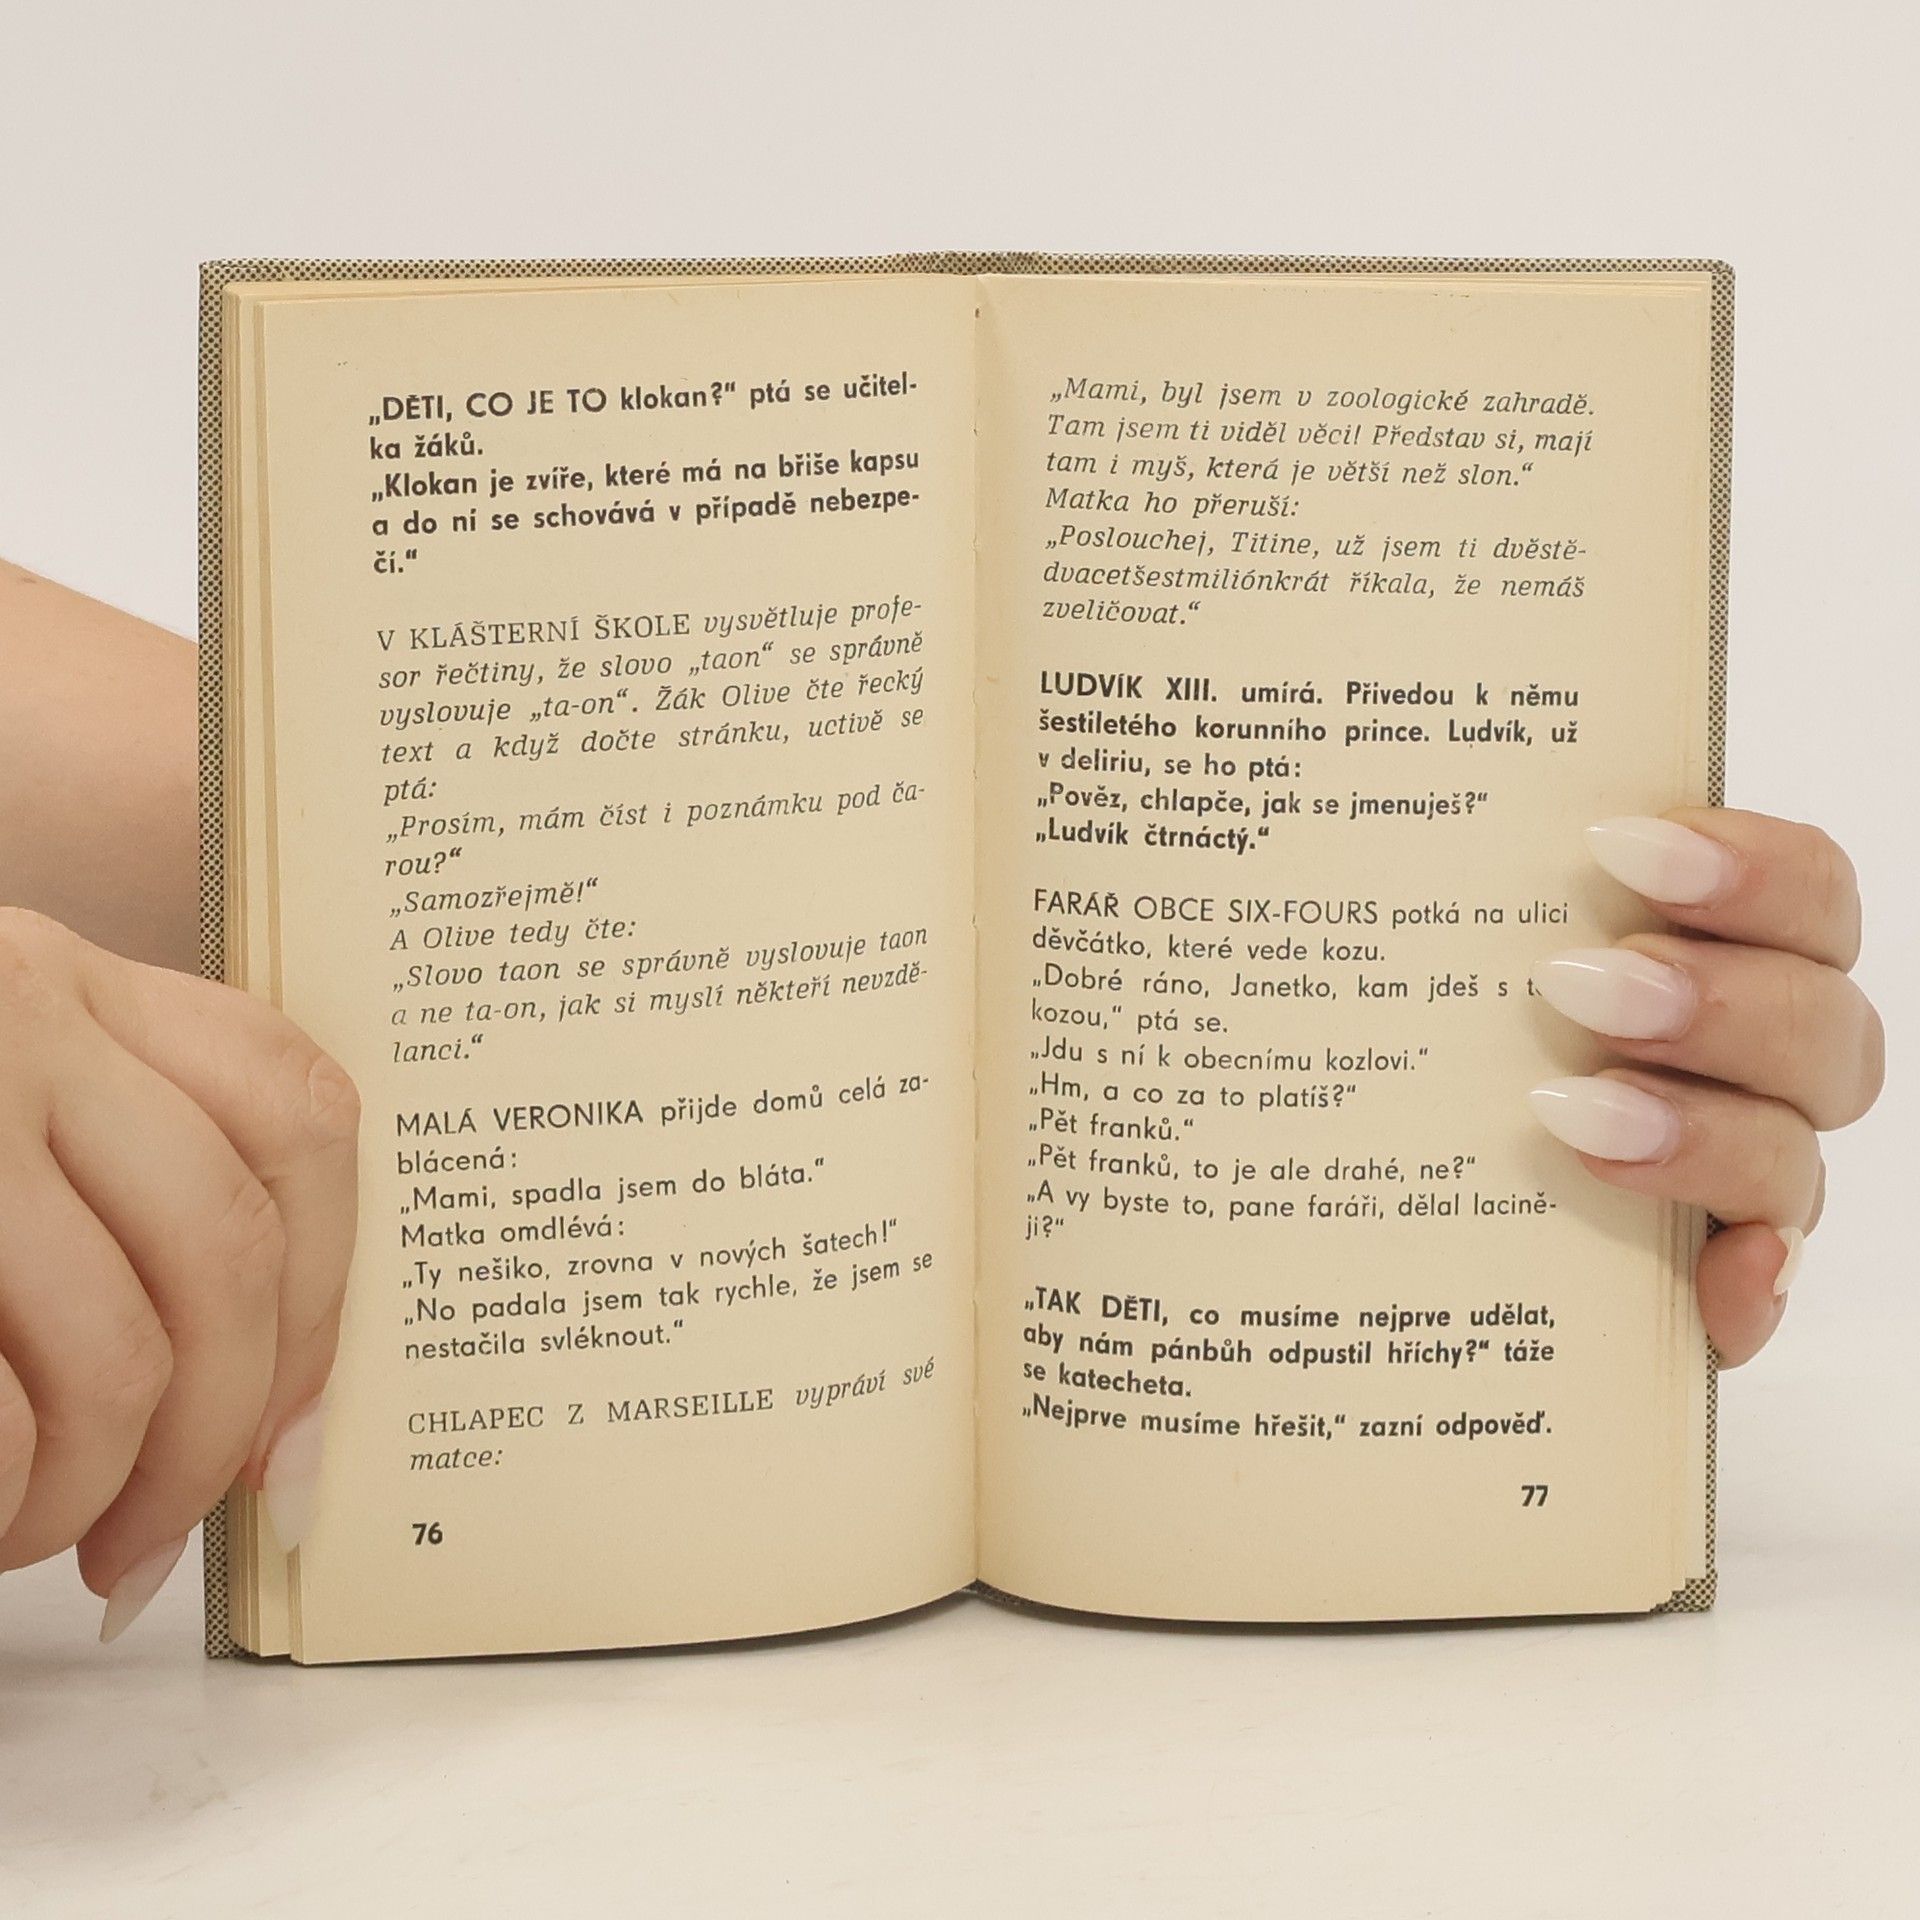 „DĚTI, CO JE TO klokan?“ ptá se učitel-
ka žáků.
„Klokan je zvíře, které má na břiše kapsu
a do ní se schovává v případě nebezpe-
čí.“
V KLÁŠTERNÍ ŠKOLE vysvětluje profe-
sor řečtiny, že slovo „taon“ se správně
vyslovuje „ta-on“. Žák Olive čte řecký
text a když dočte stránku, uctivě se
ptá:
„Prosím, mám číst i poznámku pod ča-
rou?“
„Samozřejmě!“
A Olive tedy čte:
„Slovo taon se správně vyslovuje taon
a ne ta-on, jak si myslí někteří nevzdě-
lanci.“
MALÁ VERONIKA přijde domů celá za-
blácená:
„Mami, spadla jsem do bláta.“
Matka omdlévá:
„Ty nešiko, zrovna v nových šatech!“
„No padala jsem tak rychle, že jsem se
nestačila svléknout.“
CHLAPEC Z MARSEILLE vypráví své
matce:
76
„Mami, byl jsem v zoologické zahradě.
Tam jsem ti viděl věci! Představ si, mají
tam i myš, která je větší než slon.“
Matka ho přeruší:
„Poslouchej, Titine, už jsem ti dvěstě-
dvacetšestmiliónkrát říkala, že nemáš
zveličovat.“
LUDVÍK XIII. umírá. Přivedou k němu
šestiletého korunního prince. Ludvík, už
v deliriu, se ho ptá:
„Pověz, chlapče, jak se jmenuješ?“
„Ludvík čtrnáctý.“
FARÁŘ OBCE SIX-FOURS potká na ulici
děvčátko, které vede kozu.
„Dobré ráno, Janetko, kam jdeš s
kozou,“ ptá se.
„Jdu s ní k obecnímu kozlovi.“
„Hm, a co za to platíš?“
„Pět franků.“
„Pět franků, to je ale drahé, ne?“
„A vy byste to, pane faráři, dělal lacině-
ji?“
„TAK DĚTI, co musíme nejprve udělat,
aby nám pánbůh odpustil hříchy?“ táže
se katecheta.
„Nejprve musíme hřešit,“ zazní odpověď.
77